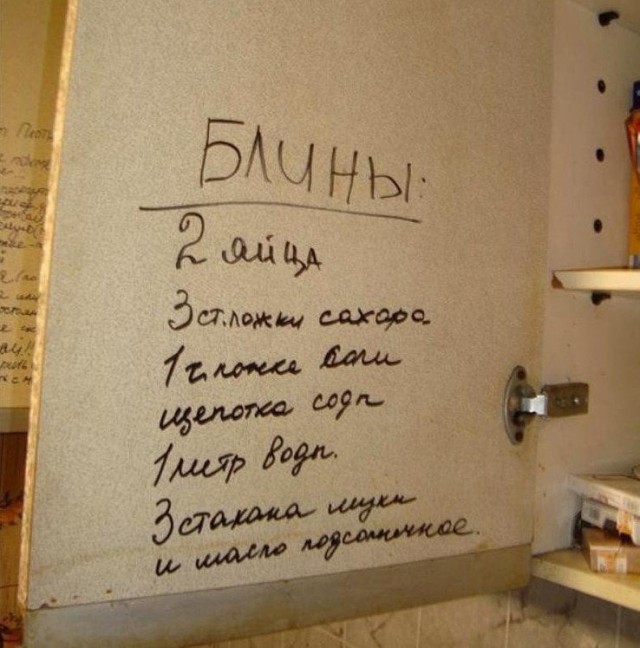 БЛИНЫ:
2 яйца
3 ст.ложки сахара
1 ч.ложка соли
щепотка соды
1 литр воды.
3 стакана муки
и масло подсолнечное.